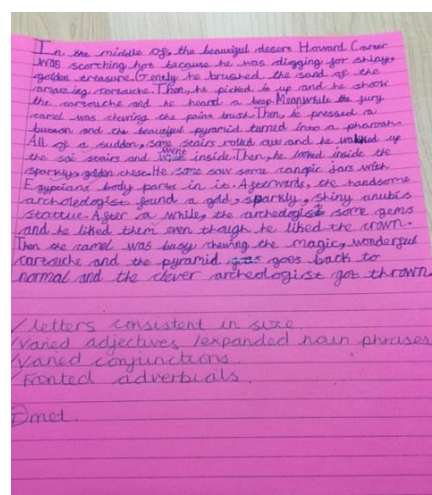 In the middle of, the beautiful desert Howard Carter
was scorching hot because he was digging for shiny,
golden treasure. Gently he brushed the sand of the
amazing cartouche. Then, he picked it up and he shook
the cartouche and he heard a beep. Meanwhile the fury
camel was chewing the paint brush. Then, he pressed a
button and the beautiful pyramid turned into a pharoah.
All of a sudden, some stairs rolled out and he walked up
the stairs and went inside. Then, he looked inside the
sparkly, golden chest. He some saw some canopic jars with
Egyptians body parts in it. Afterwards, the handsome
archeologist found a gold, sparkly, shiny anubis
stattue. After a while, the archeologist some gems
and he liked them even though he liked the crown.
Then the camel was busy chewing the magic, wonderful
cartouche and the pyramid goes back to
normal and the clever archeologist got thrown.
/letters consistent in size
/Varied adjectives /expanded noun phrases
/Varied conjunctions.
/Fronted adverbials.
met